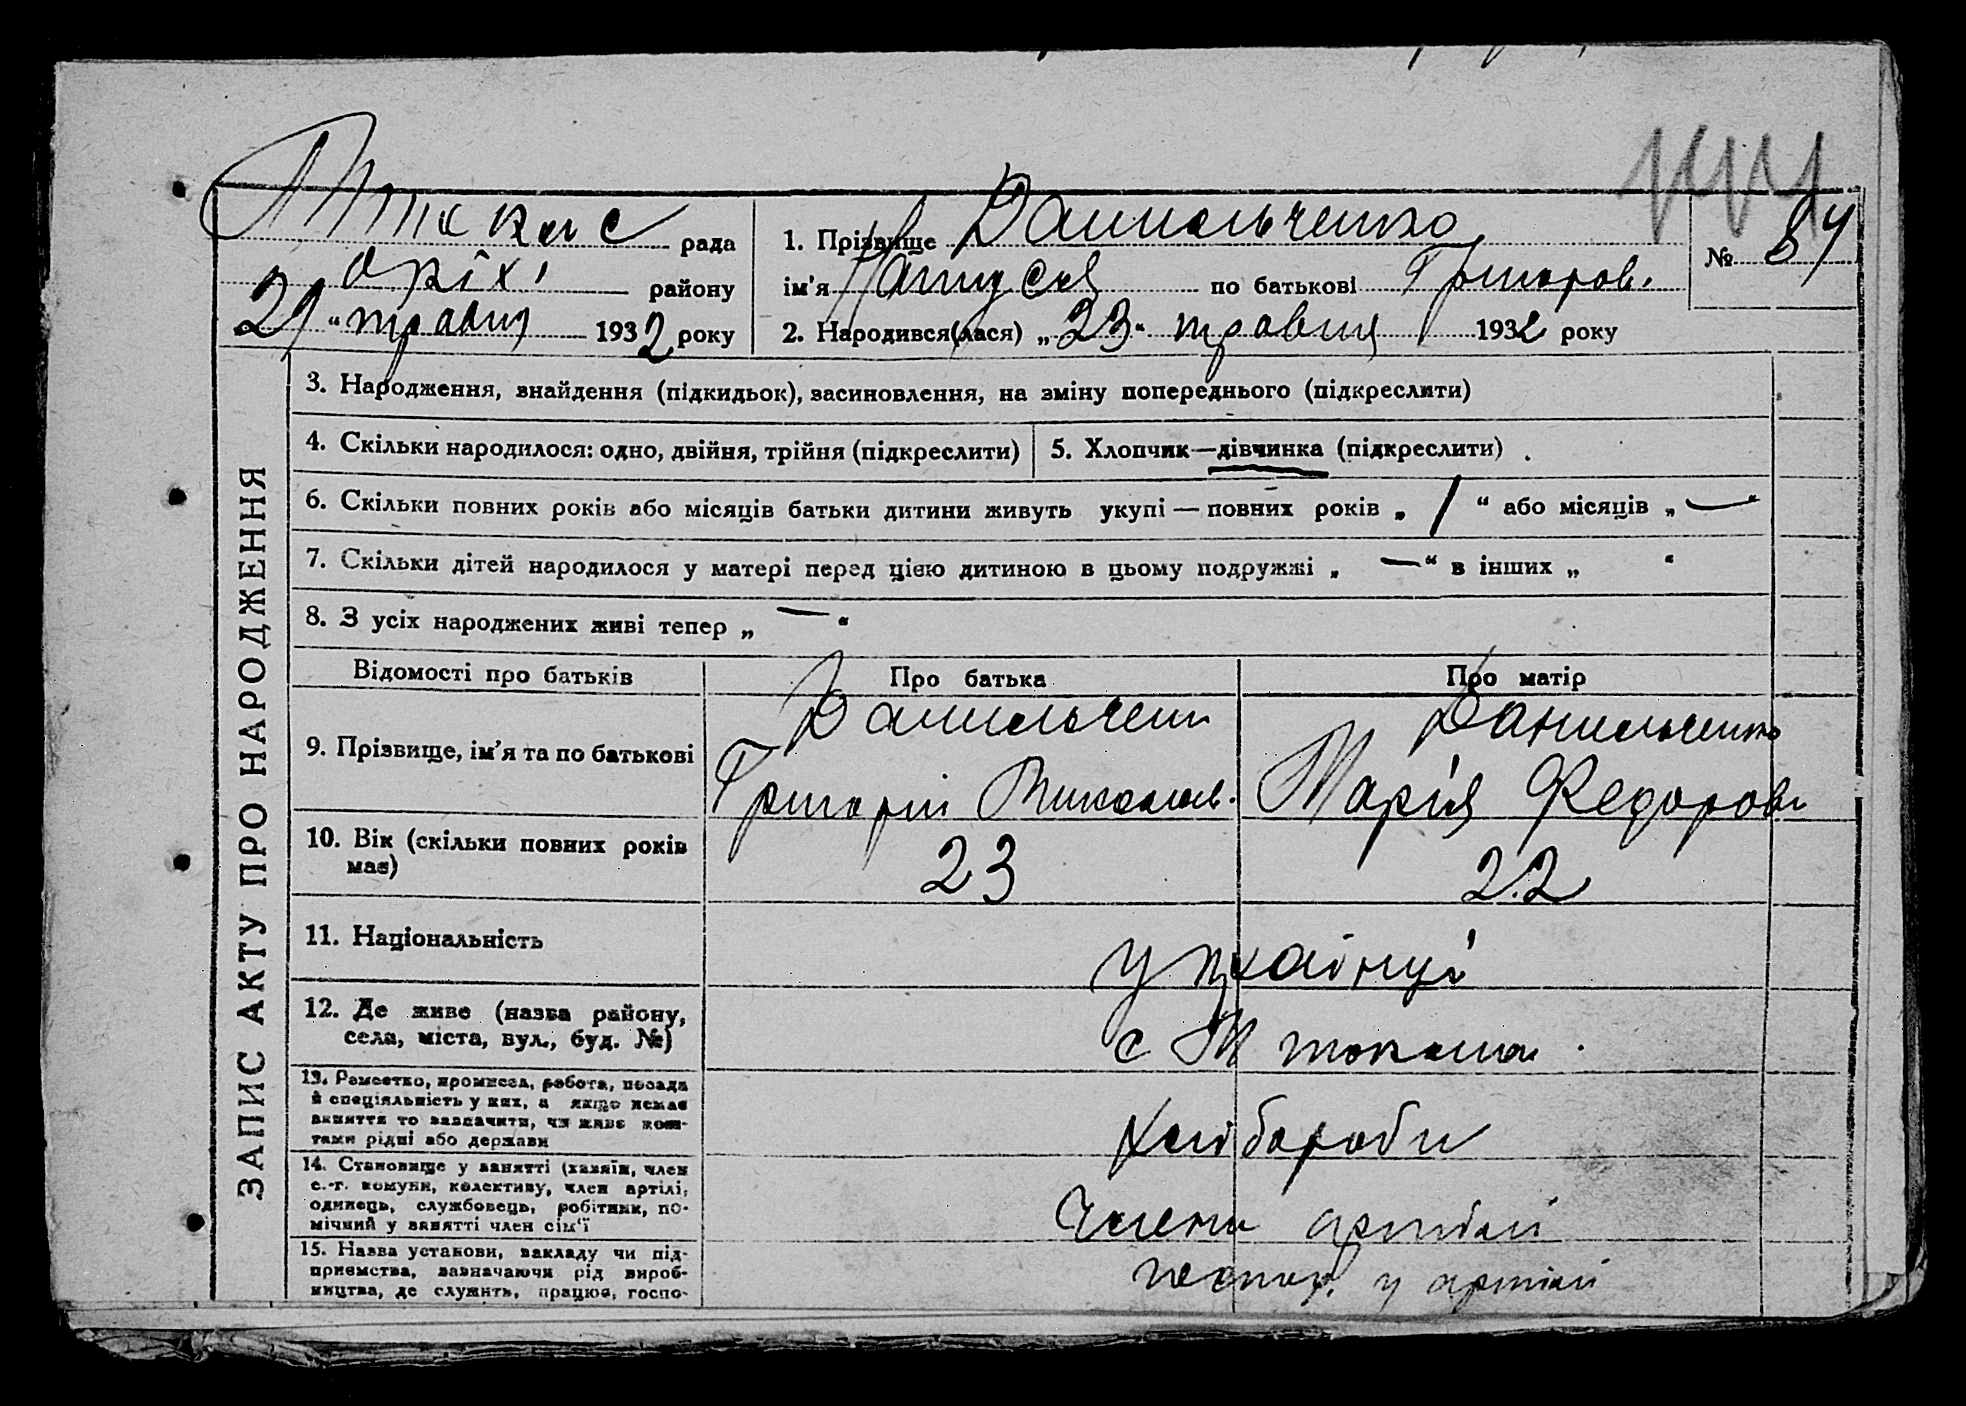 рада
1. Прізвище Данильченко
№ 84
оріх. району
ім'я по батькові Григоров.
29 " травня 1932 року
2. Народився(лася) „ 23 " травня 1932 року
ЗАПИС АКТУ ПРО НАРОДЖЕННЯ
3. Народження, знайдення (підкидьок), засиновлення, на зміну попереднього (підкреслити)
4. Скільки народилося: одно, двійня, трійня (підкреслити)
5. Хлопчик—дівчинка (підкреслити)
6. Скільки повних років або місяців батьки дитини живуть укупі — повних років „ 1 “ або місяців „ — “
7. Скільки дітей народилося у матері перед цією дитиною в цьому подружжі „ — “ в інших „ “
8. З усіх народжених живі тепер „ — “
Відомості про батьків
Про батька
Про матір
9. Прізвище, ім'я та по батькові
Данильченк
Григорій Миколаєв.
Данильченко
Марія Федоровн
10. Вік (скільки повних років має)
23
22
11. Національність
українці
12. Де живе (назва району,
села, міста, вул., буд. №)
с
13. Ремество, промисел, робота, посада
й спеціяльність у них, а якщо немає
заняття то зазначити, чи живе кош-
тами рідні або держави
хлібороби
14. Становище у занятті (хазяїн, член
с.-г. комуни, колективу, член артілі,
одинець, службовець, робітник, по-
мічний у занятті член сім'ї
члени артілі
15. Назва установи, закладу чи під-
приємства, зазначаючи рід вироб-
ництва, де служить, працює, госпо-
у артілі